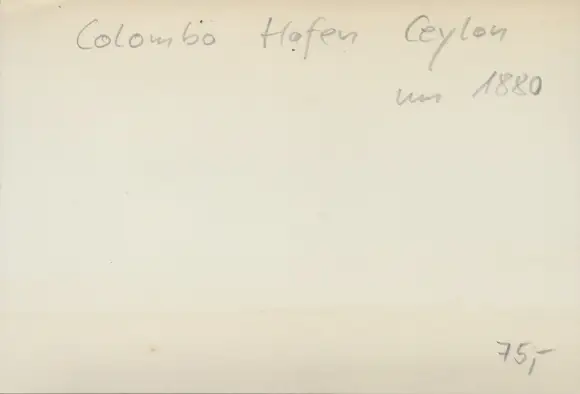 Colombo Hafen Ceylon
um 1880
75,-